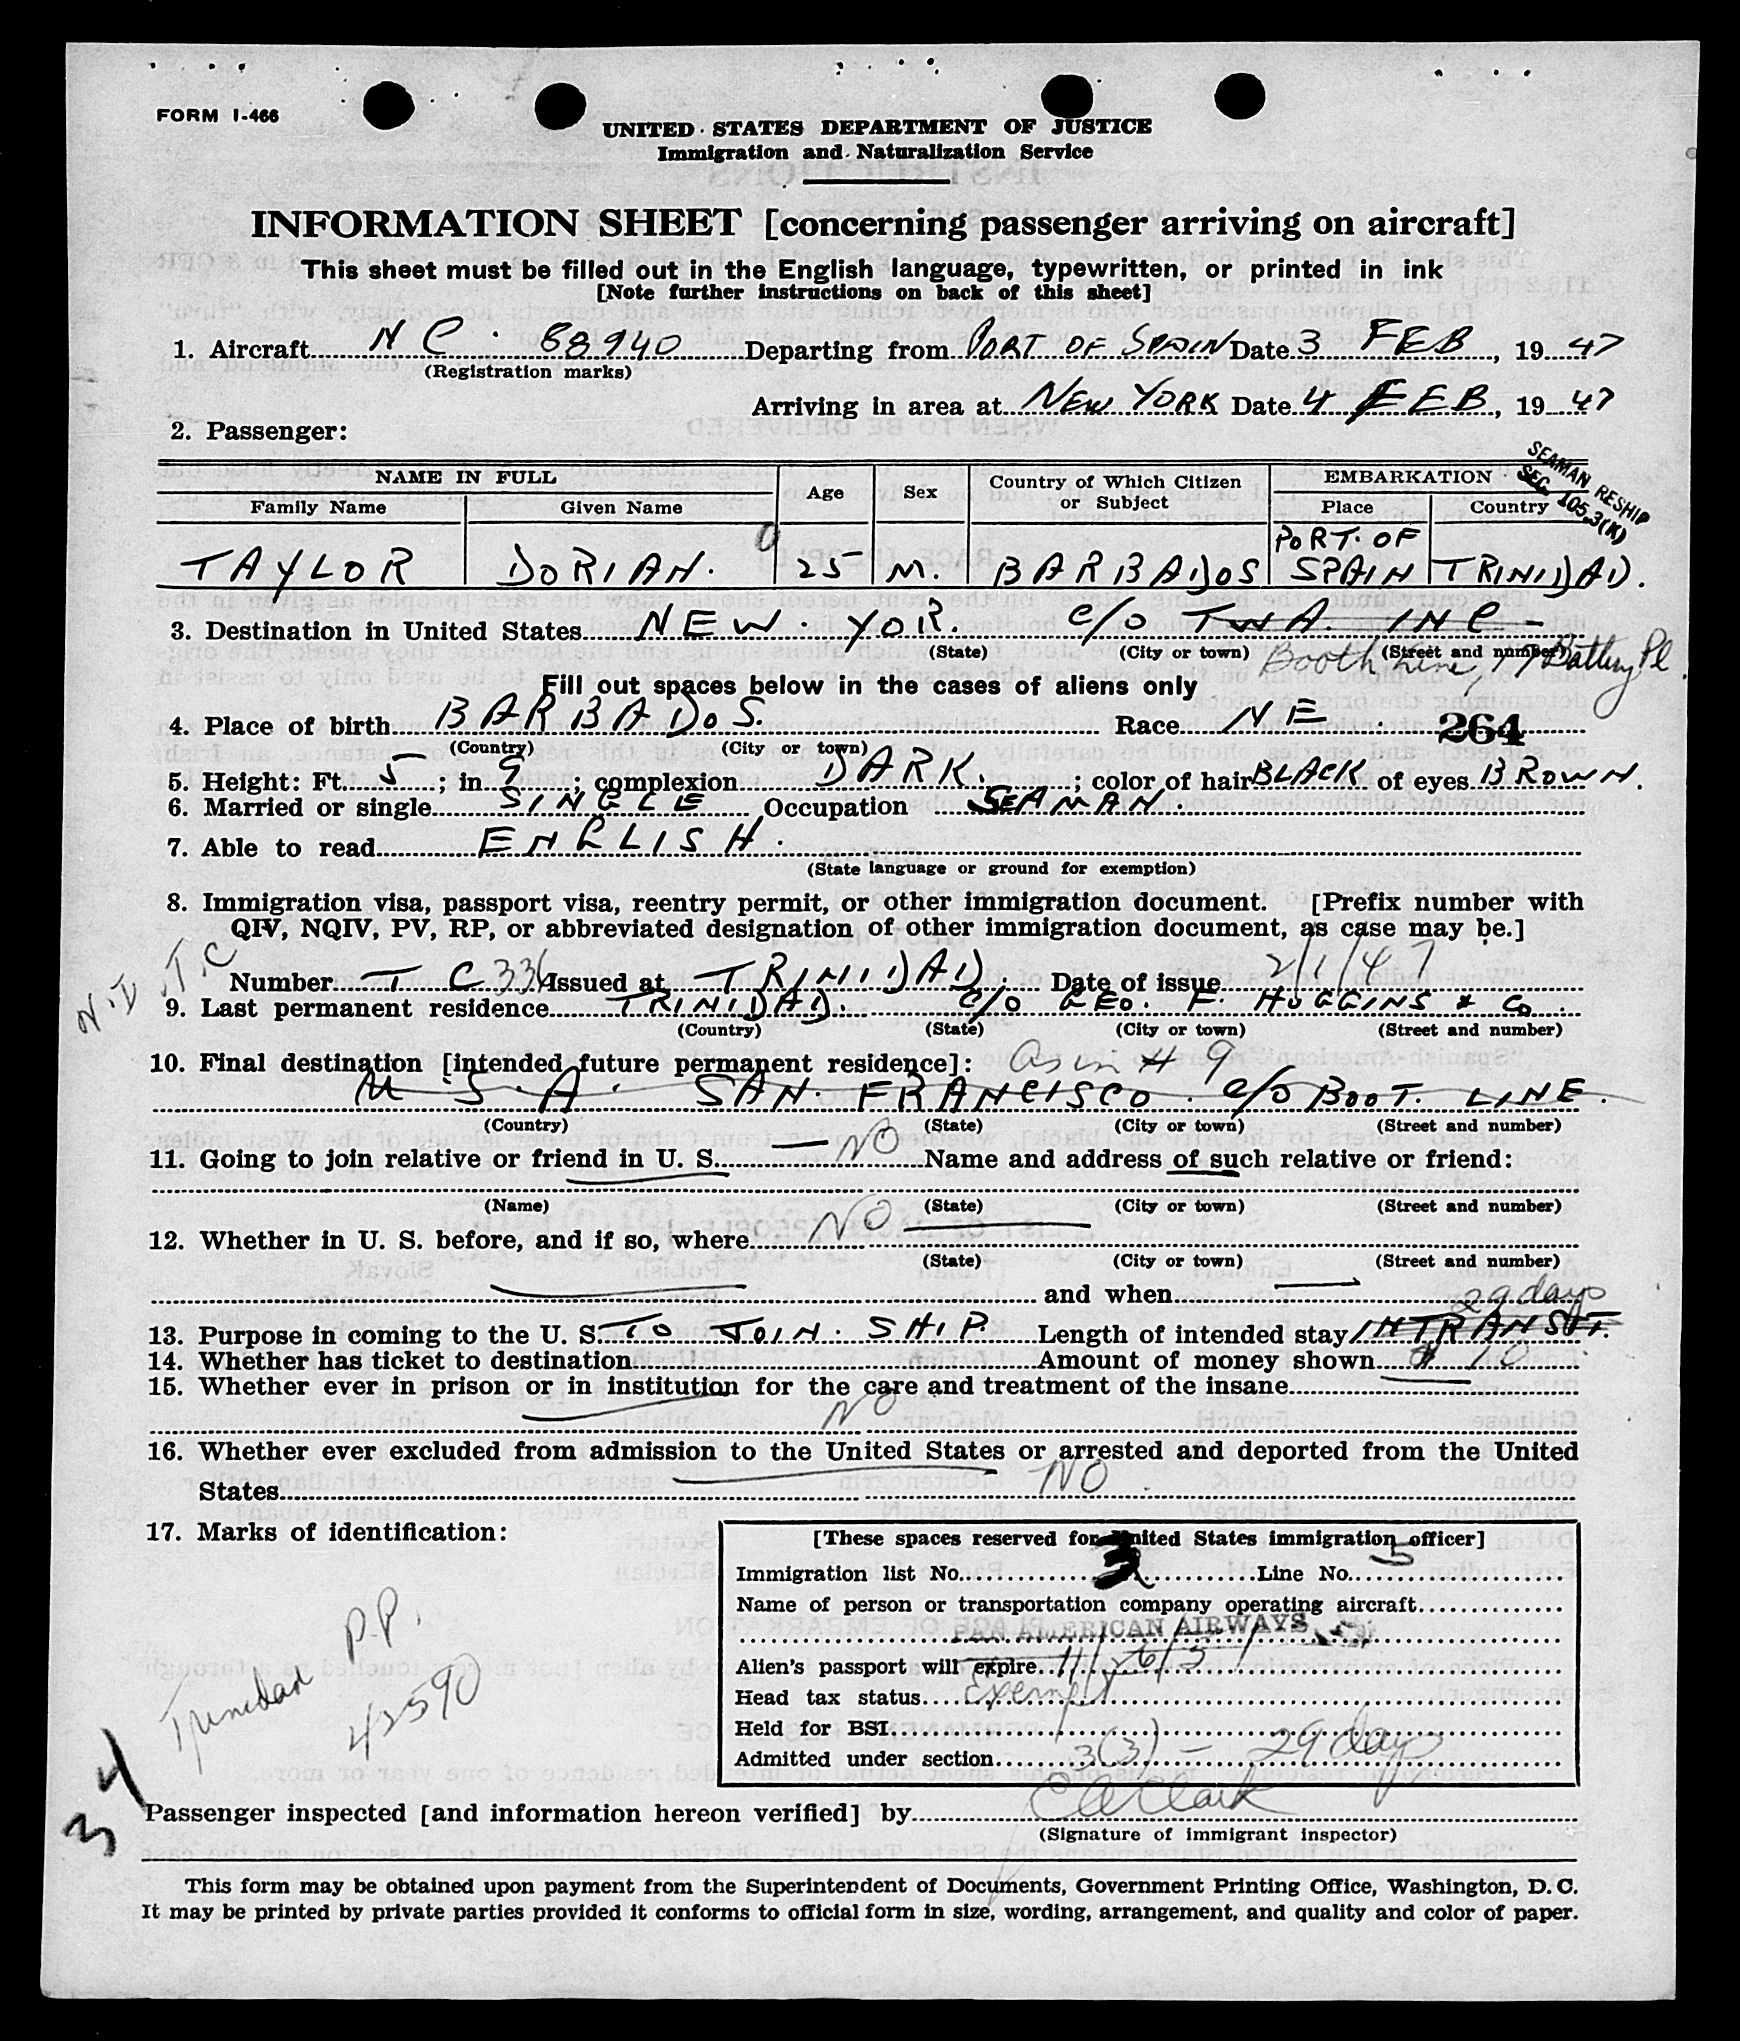 FORM I-466
UNITED STATES DEPARTMENT OF JUSTICE
Immigration and Naturalization Service
INFORMATION SHEET [concerning passenger arriving on aircraft]
This sheet must be filled out in the English language, typewritten, or printed in ink
[Note further instructions on back of this sheet]
1. Aircraft NC 88940 Departing from PORT OF SPAIN Date 3 FEB, 19 47
(Registration marks)
Arriving in area at NEW YORK Date 4 FEB, 19 47
2. Passenger:
SEAMAN RESHIP
SEC. 105.3(K)
NAME IN FULL Age Sex Country of Which Citizen or Subject EMBARKATION
Family Name Given Name Place Country
TAYLOR DORIAN. 25 M. BARBADOS PORT. OF SPAIN TRINIDAD.
3. Destination in United States NEW. YOR. c/o TWA. INC -
(State) (City or town) (Street and number)
Booth Line, 17 Battery Pl.
Fill out spaces below in the cases of aliens only
4. Place of birth BARBADOS. Race NE 264
(Country) (City or town)
5. Height: Ft. 5; in. 9; complexion DARK.; color of hair BLACK of eyes BROWN.
6. Married or single SINGLE Occupation SEAMAN.
7. Able to read ENGLISH.
(State language or ground for exemption)
8. Immigration visa, passport visa, reentry permit, or other immigration document. [Prefix number with
QIV, NQIV, PV, RP, or abbreviated designation of other immigration document, as case may be.]
N.I.T.C
Number T C 336 Issued at TRINIDAD. Date of issue 2/1/47
9. Last permanent residence TRINIDAD. c/o GEO. F. HUGGINS & Co.
(Country) (State) (City or town) (Street and number)
10. Final destination [intended future permanent residence]: As in # 9
U S. A. SAN. FRANCISCO. c/o BOOT. LINE.
(Country) (State) (City or town) (Street and number)
11. Going to join relative or friend in U. S. NO Name and address of such relative or friend:
(Name) (State) (City or town) (Street and number)
12. Whether in U. S. before, and if so, where NO
(State) (City or town) (Street and number)
and when
29 days
13. Purpose in coming to the U. S. TO JOIN. SHIP. Length of intended stay INTRANSIT.
14. Whether has ticket to destination Amount of money shown $ 10
15. Whether ever in prison or in institution for the care and treatment of the insane
NO
16. Whether ever excluded from admission to the United States or arrested and deported from the United
States NO
17. Marks of identification:
Trinidad P.P.
42590
[These spaces reserved for United States immigration officer]
Immigration list No. Line No. 5
Name of person or transportation company operating aircraft
PAN AMERICAN AIRWAYS
Alien's passport will expire 11/26/51
Head tax status Exempt
Held for BSI
Admitted under section 3(3) - 29 days
34
Passenger inspected [and information hereon verified] by CA Clark
(Signature of immigrant inspector)
This form may be obtained upon payment from the Superintendent of Documents, Government Printing Office, Washington, D. C.
It may be printed by private parties provided it conforms to official form in size, wording, arrangement, and quality and color of paper.